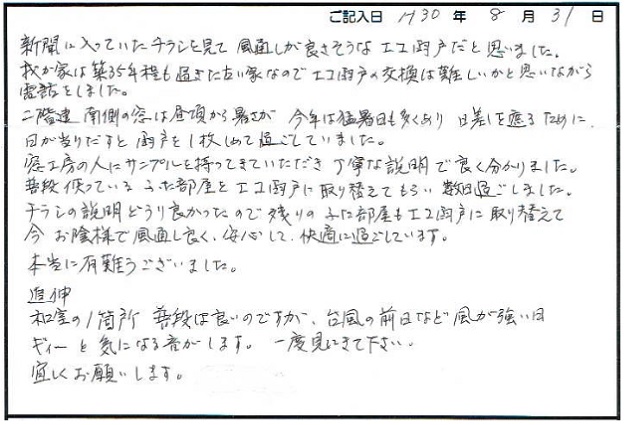 ご記入日 H30 年 8 月 31 日
新聞に入っていたチラシを見て 風通しが良さそうな エコ雨戸だと思いました。
我が家は築35年程も過ぎた古い家なので エコ雨戸の交換は難しいかと思いながら
電話をしました。
二階建 南側の窓は昼頃から暑さが 今年は猛暑日も多くあり 日差しを遮るために、
日が当りだすと 雨戸を1枚しめて過ごしていました。
窓工房の人にサンプルを持ってきていただき 丁寧な説明で良く分かりました。
普段使っている ふた部屋をエコ雨戸に取り替えてもらい 数日過ごしました。
チラシの説明どうり良かったので残りの ふた部屋もエコ雨戸に取り替えて
今 お陰様で風通し良く、安心して、快適に過ごしています。
本当に有難うございました。
追伸
和室の1箇所 普段は良いのですが、台風の前日など 風が強い日
ギィーと気になる音がします。 一度見にきて下さい。
宜しくお願いします。